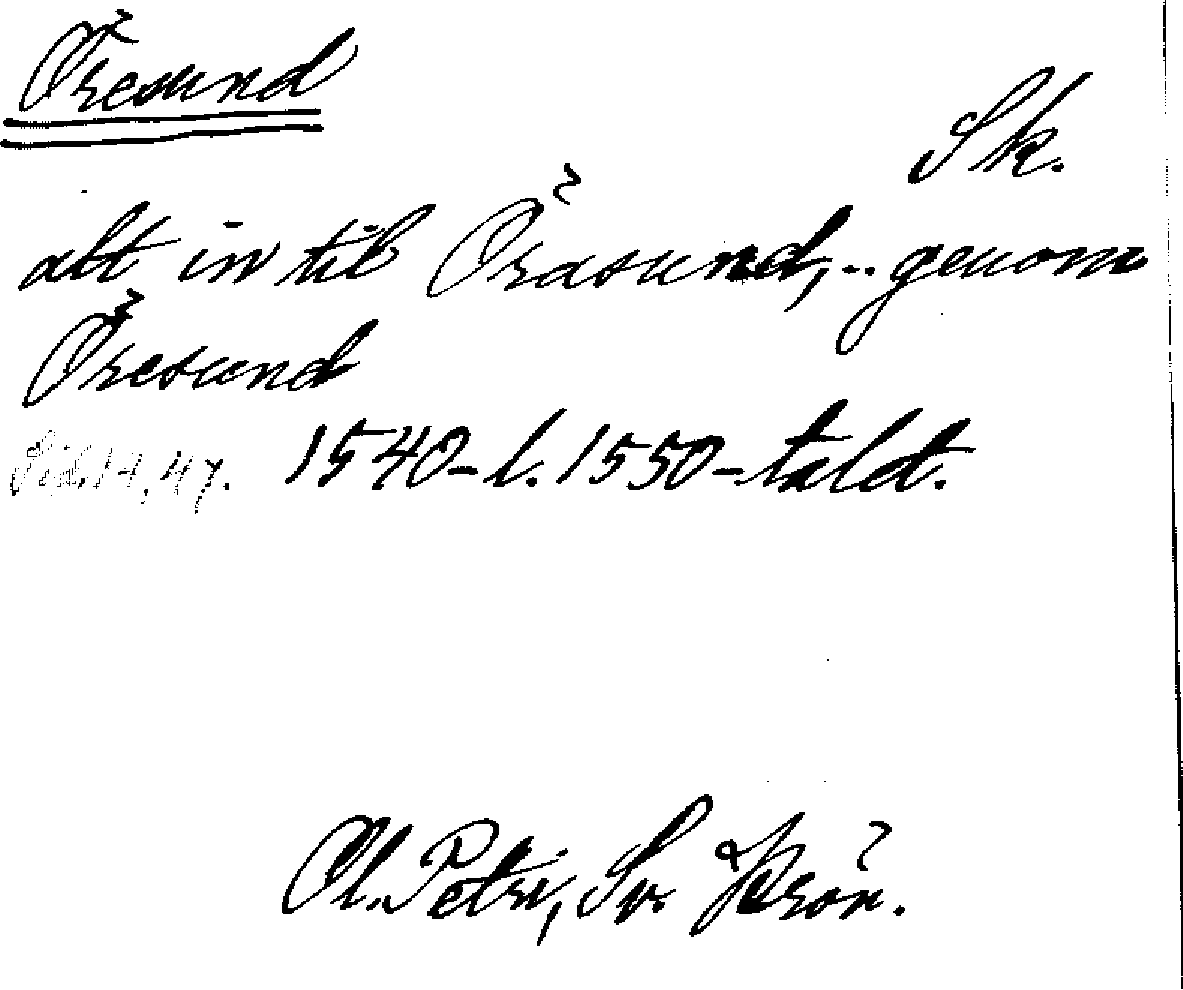 Öresund
Sk.
alt in til Örasund, .. genom
Öresund
Sid. 14, 47. 1540- l. 1550-talet.
Ol. Petri, Sv. Krön.